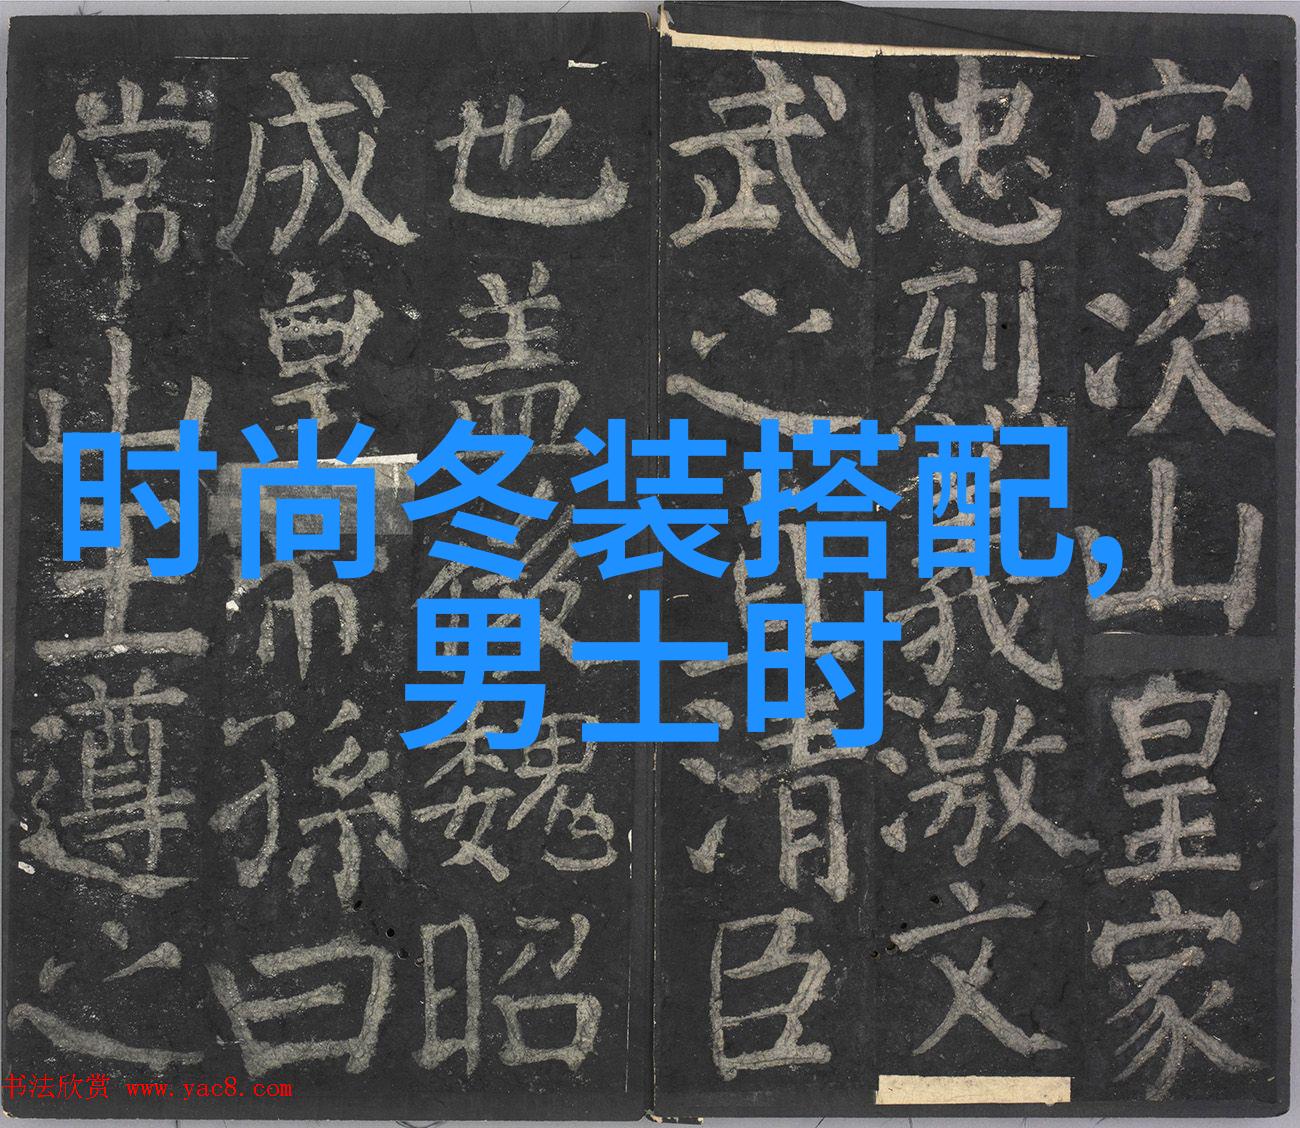 时尚冬装搭配,
男士时
字次山皇家
忠烈義激文
武之直清臣
也盖後魏昭
成皇帝孫曰
常山王遵之
书法欣赏 www.yac8.com